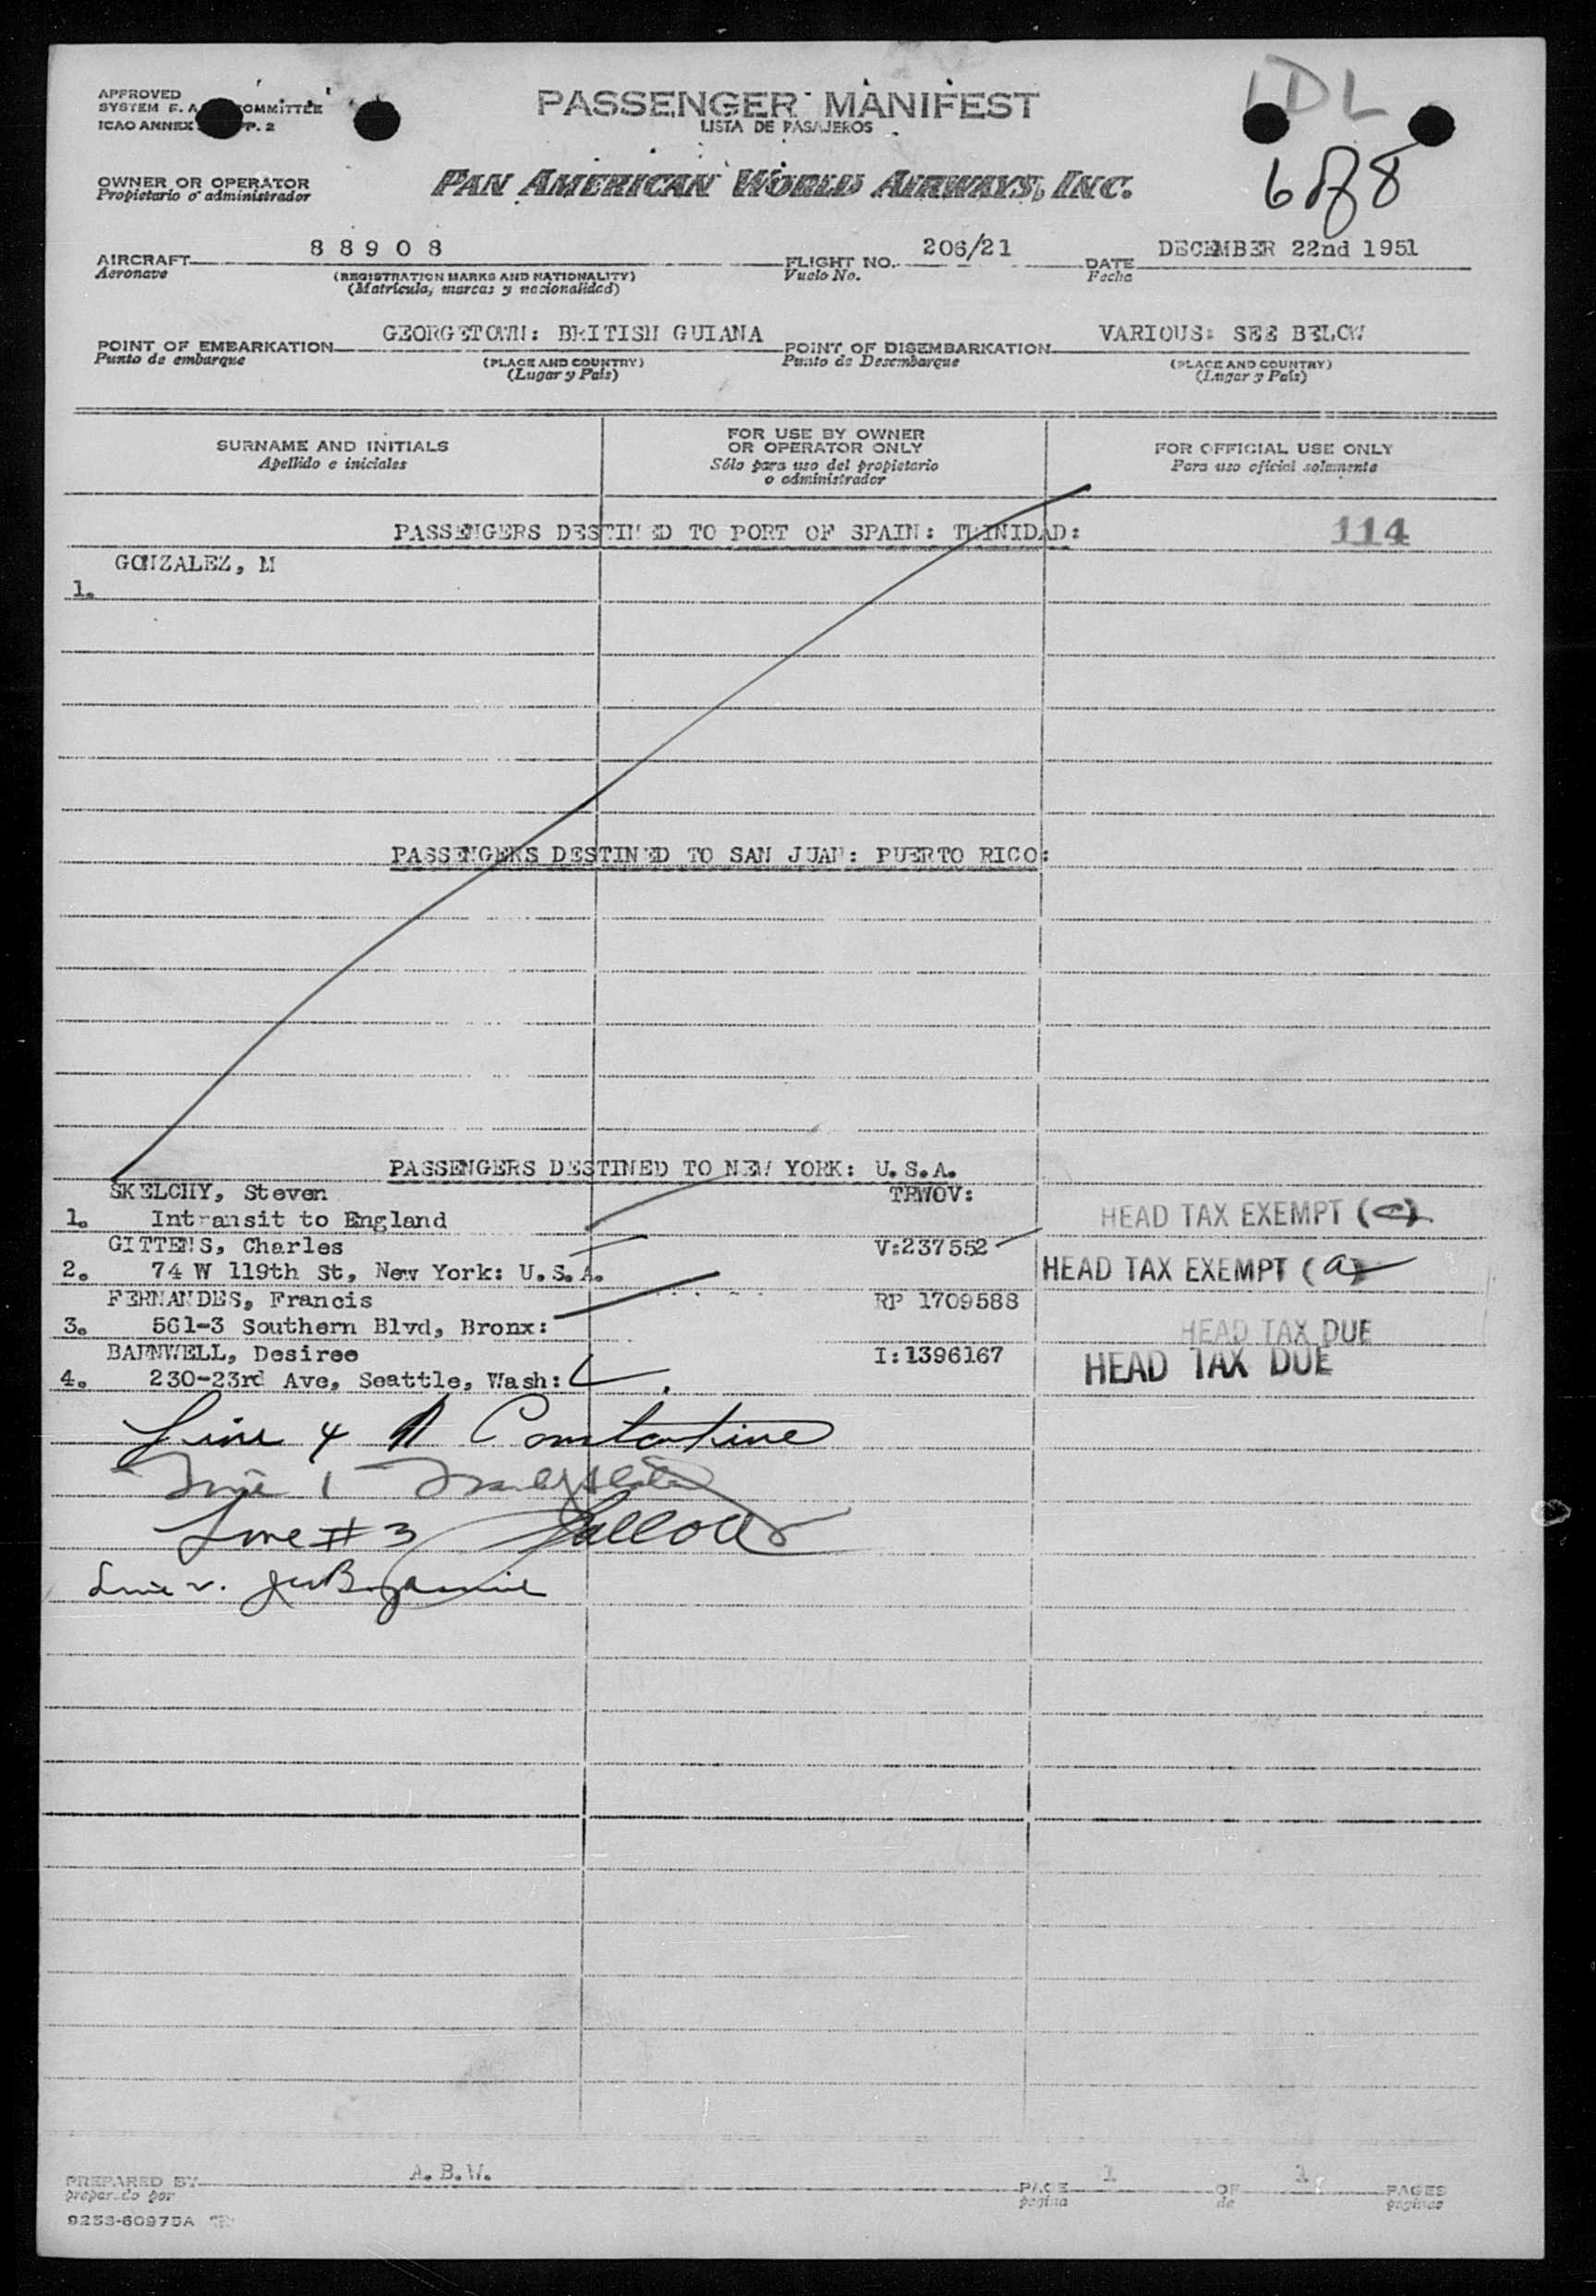 APPROVED
SYSTEM F. A. COMMITTEE
ICAO ANNEX P. 2
PASSENGER MANIFEST
LISTA DE PASAJEROS
IDL
6 of 8
OWNER OR OPERATOR
Propietario o administrador
PAN AMERICAN WORLD AIRWAYS, INC.
AIRCRAFT 88908 FLIGHT NO. 206/21 DATE DECEMBER 22nd 1951
Aeronave (REGISTRATION MARKS AND NATIONALITY) Vuelo No. Fecha
(Matrícula, marcas y nacionalidad)
POINT OF EMBARKATION GEORGETOWN: BRITISH GUIANA POINT OF DISEMBARKATION VARIOUS: SEE BELOW
Punto de embarque (PLACE AND COUNTRY) Punto de Desembarque (PLACE AND COUNTRY)
(Lugar y País) (Lugar y País)
SURNAME AND INITIALS
Apellido e iniciales
FOR USE BY OWNER
OR OPERATOR ONLY
Sólo para uso del propietario
o administrador
FOR OFFICIAL USE ONLY
Para uso oficial solamente
PASSENGERS DESTINED TO PORT OF SPAIN: TRINIDAD: 114
GONZALEZ, M
1.
PASSENGERS DESTINED TO SAN JUAN: PUERTO RICO:
PASSENGERS DESTINED TO NEW YORK: U.S.A.
SKELCHY, Steven TRWOV:
1. Intransit to England HEAD TAX EXEMPT (c)
GITTENS, Charles V:237552
2. 74 W 119th St, New York: U.S.A. HEAD TAX EXEMPT (a)
FERNANDES, Francis RP 1709588
3. 561-3 Southern Blvd, Bronx: HEAD TAX DUE
BARNWELL, Desiree I:1396167 HEAD TAX DUE
4. 230-23rd Ave, Seattle, Wash:
Line 4 N Constantine
Line 1
Line #3
Line 2. Benjamin
PREPARED BY A.B.W. PAGE 1 OF 1 PAGES
preparado por página de páginas
9253-60975A